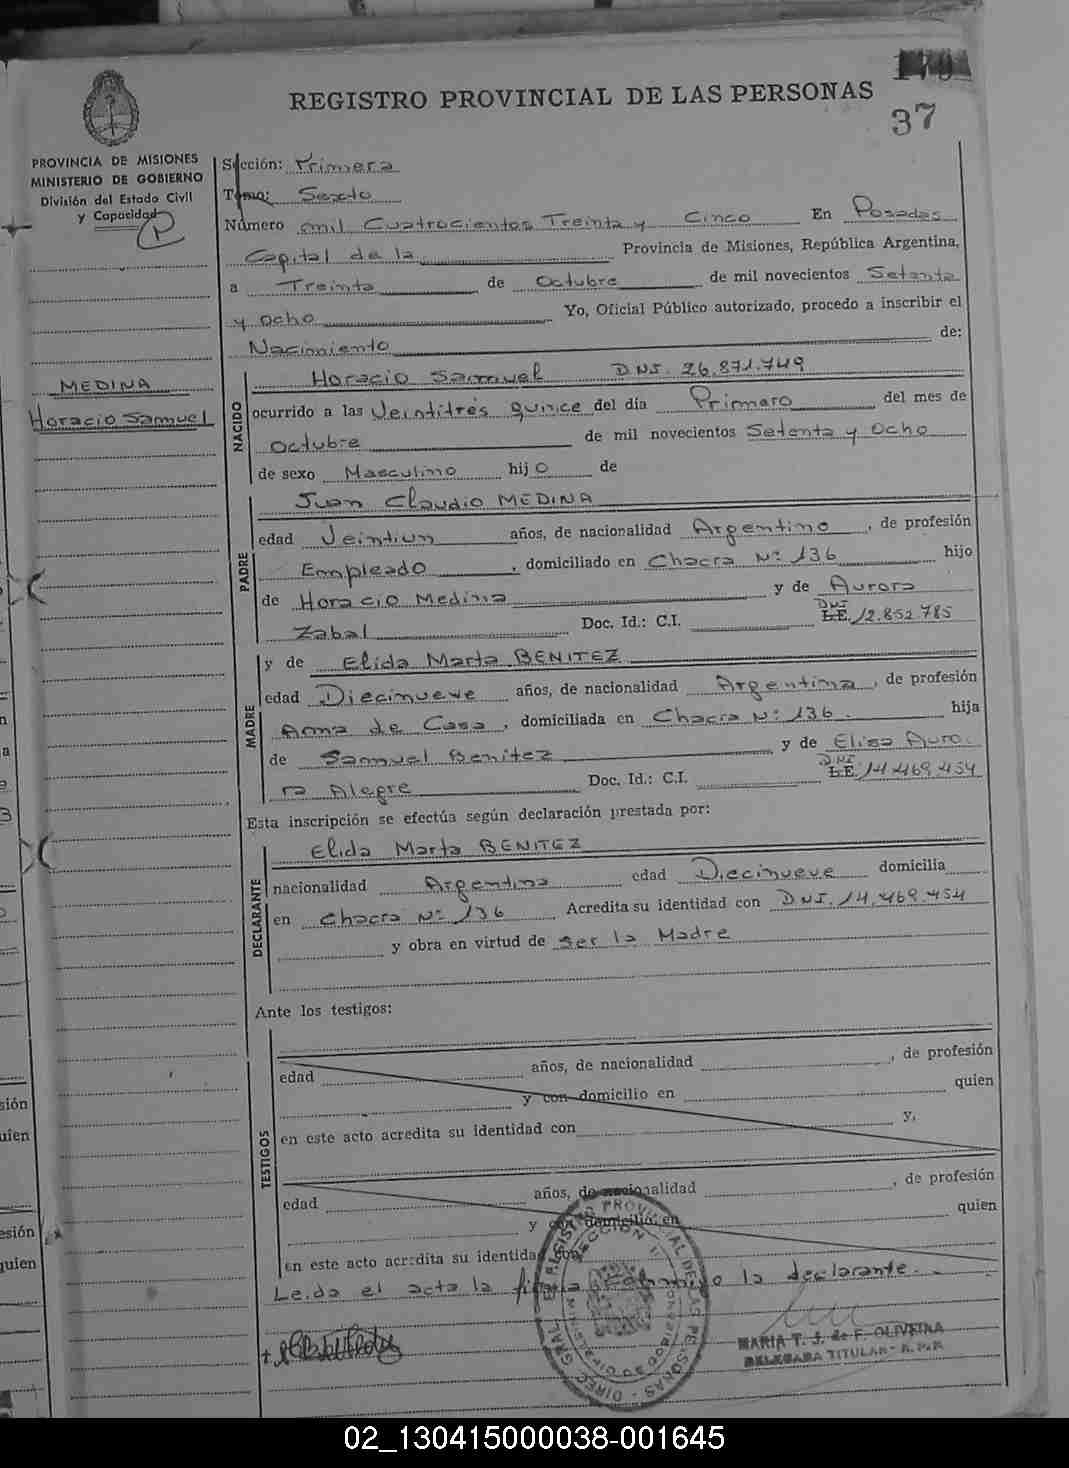 REGISTRO PROVINCIAL DE LAS PERSONAS
37
PROVINCIA DE MISIONES
MINISTERIO DE GOBIERNO
División del Estado Civil
y Capacidad
P
MEDINA
Horacio Samuel
Sección: Primera
Tomo: Sexto
Número mil Cuatrocientos Treinta y Cinco En Posadas
Capital de la Provincia de Misiones, República Argentina,
a Treinta de Octubre de mil novecientos Setenta
y ocho Yo, Oficial Público autorizado, procedo a inscribir el
Nacimiento de:
NACIDO
Horacio Samuel DNI. 26.871.749
ocurrido a las Veintitrés quince del día Primero del mes de
Octubre de mil novecientos Setenta y Ocho
de sexo Masculino hijo de
PADRE
Juan Claudio MEDINA
edad Veintiun años, de nacionalidad Argentino, de profesión
Empleado, domiciliado en Chacra Nº 136 hijo
de Horacio Medina y de Aurora
Zabal Doc. Id.: C.I. DNI L.E. 12.852.785
MADRE
y de Elida Marta BENITEZ
edad Diecinueve años, de nacionalidad Argentina, de profesión
Ama de Casa, domiciliada en Chacra Nº 136. hija
de Samuel Benitez y de Elisa Auro.
ra Alegre Doc. Id.: C.I. DNI L.E. 14.469.454
Esta inscripción se efectúa según declaración prestada por:
DECLARANTE
Elida Marta BENITEZ
nacionalidad Argentina edad Diecinueve domicilia
en Chacra Nº 136 Acredita su identidad con DNI. 14.469.454
y obra en virtud de ser la Madre
Ante los testigos:
TESTIGOS
edad años, de nacionalidad, de profesión
y con domicilio en quien
en este acto acredita su identidad con y,
edad años, de nacionalidad, de profesión
y con domicilio en quien
en este acto acredita su identidad con
Leida el acta la firma conmigo la declarante.
DIREC. GRAL. DEL REGISTRO PROVINCIAL DE LAS PERSONAS
SECCION 1
MARIA T. J. de F. OLIVEIRA
DELEGADA TITULAR - R. P. P.
02_130415000038-001645